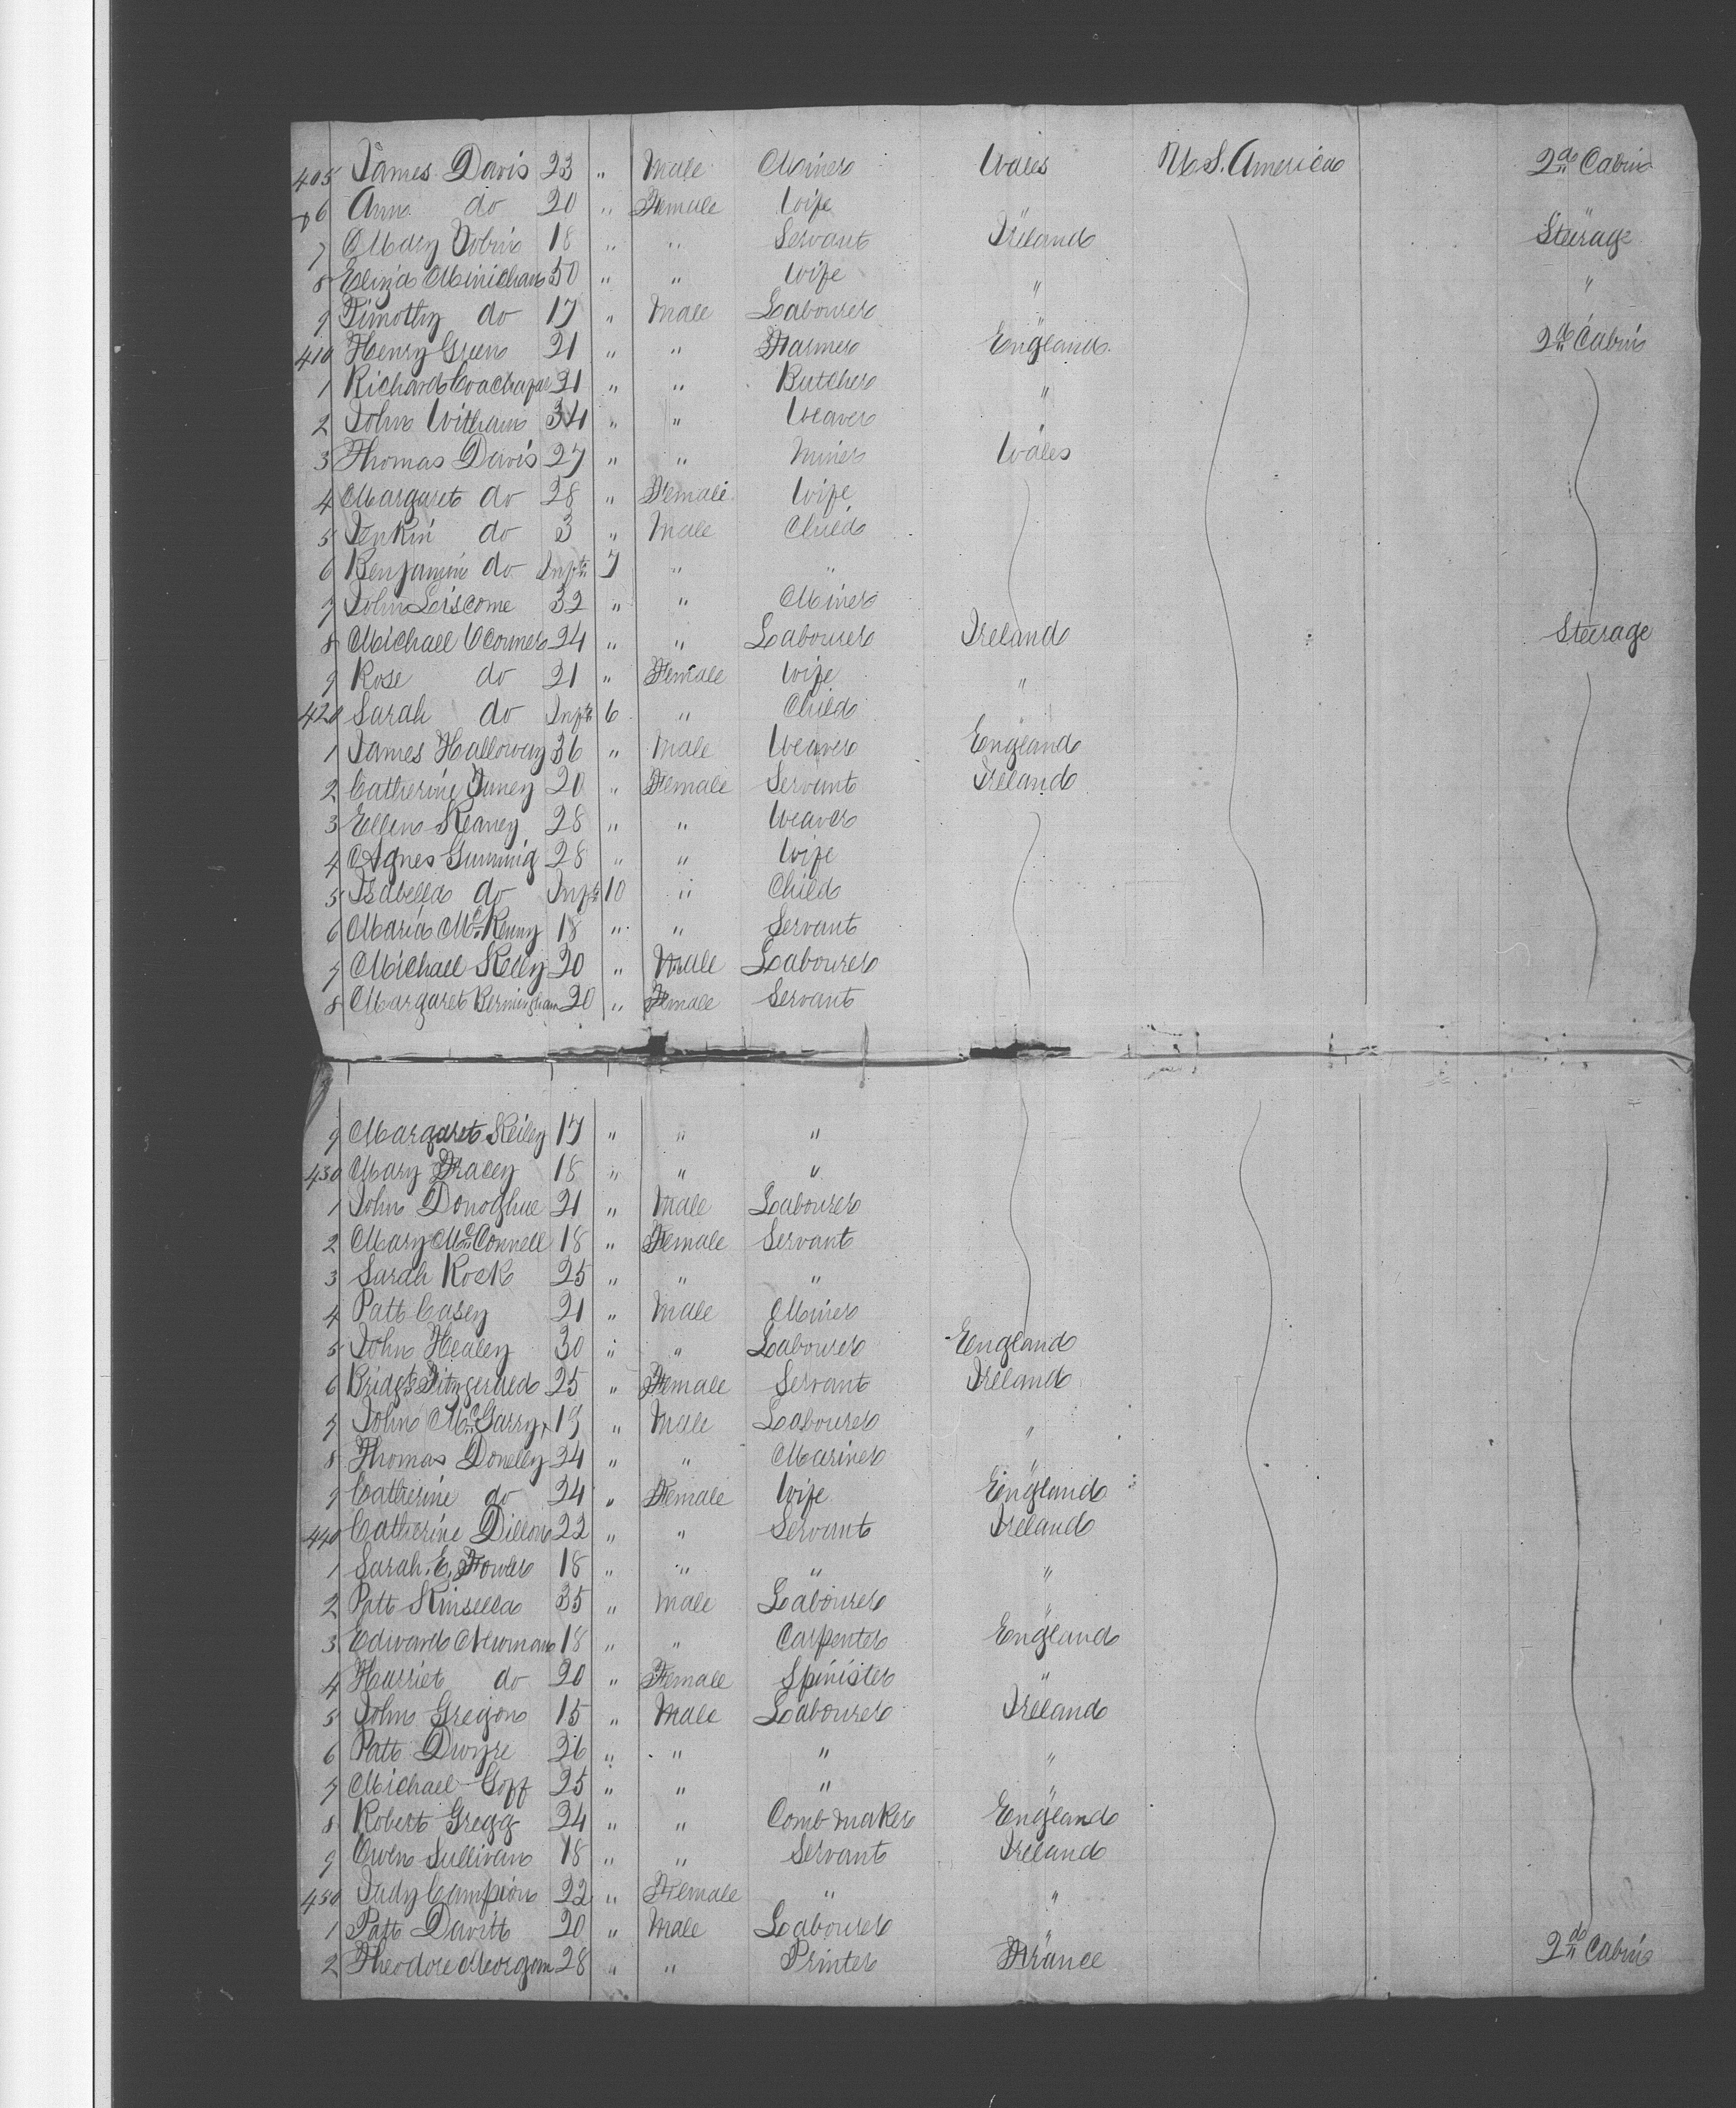 405 James Davis 23 " Male Miner Wales U.S. America 2nd Cabin
06 Ann do 20 " Female Wife "
7 Mary Tobin 18 " " Servant Ireland Steerage
8 Eliza Minichan 50 " " Wife " "
9 Timothy do 17 " Male Labourer " "
410 Henry Green 21 " " Farmer England 2nd Cabin
1 Richard 21 " " Butcher "
2 John Witham 34 " " Weaver "
3 Thomas Davis 27 " " Miner Wales
4 Margaret do 28 " Female Wife
5 Jenkin do 3 " Male Child
6 Benjamin do Inft 7 " "
7 John Liscome 32 " " Miner
8 Michael OConner 24 " " Labourer Ireland Steerage
9 Rose do 21 " Female Wife "
420 Sarah do Inft 6 " Child "
1 James Halloway 36 " Male Weaver England
2 Catherine 20 " Female Servant Ireland
3 Ellen Keaney 28 " " Weaver
4 Agnes 28 " " Wife
5 Isabella do Inft 10 " Child
6 Maria McKenny 18 " " Servant
7 Michael Kelly 20 " Male Labourer
8 Margaret Bermingham 20 " Female Servant
9 Margaret Keiley 17 " " "
430 Mary Tracey 18 " " "
1 John Donoghue 21 " Male Labourer
2 Mary McConnell 18 " Female Servant
3 Sarah Rock 25 " " "
4 Patt Casey 21 " Male Miner
5 John Healey 30 " " Labourer England
6 Bridgt Fitzgerald 25 " Female Servant Ireland
7 John McGarry 19 " Male Labourer "
8 Thomas Doneley 24 " " Mariner "
9 Catherine do 24 " Female Wife England
440 Catherine Dillon 22 " " Servant Ireland
1 Sarah E. Fowler 18 " " " "
2 Patt Kinsella 35 " Male Labourer "
3 Edward Newman 18 " " Carpenter England
4 Harriet do 20 " Female Spinister "
5 John Gregon 15 " Male Labourer Ireland
6 Patt Dwyre 26 " " " "
7 Michael Goff 25 " " " "
8 Robert Gregg 24 " " Comb maker England
9 Owen Sullivan 18 " " Servant Ireland
450 Judy Campion 22 " Female " "
1 Patt Davitt 20 " Male Labourer "
2 Theodore Morgan 28 " " Printer France 2nd Cabin